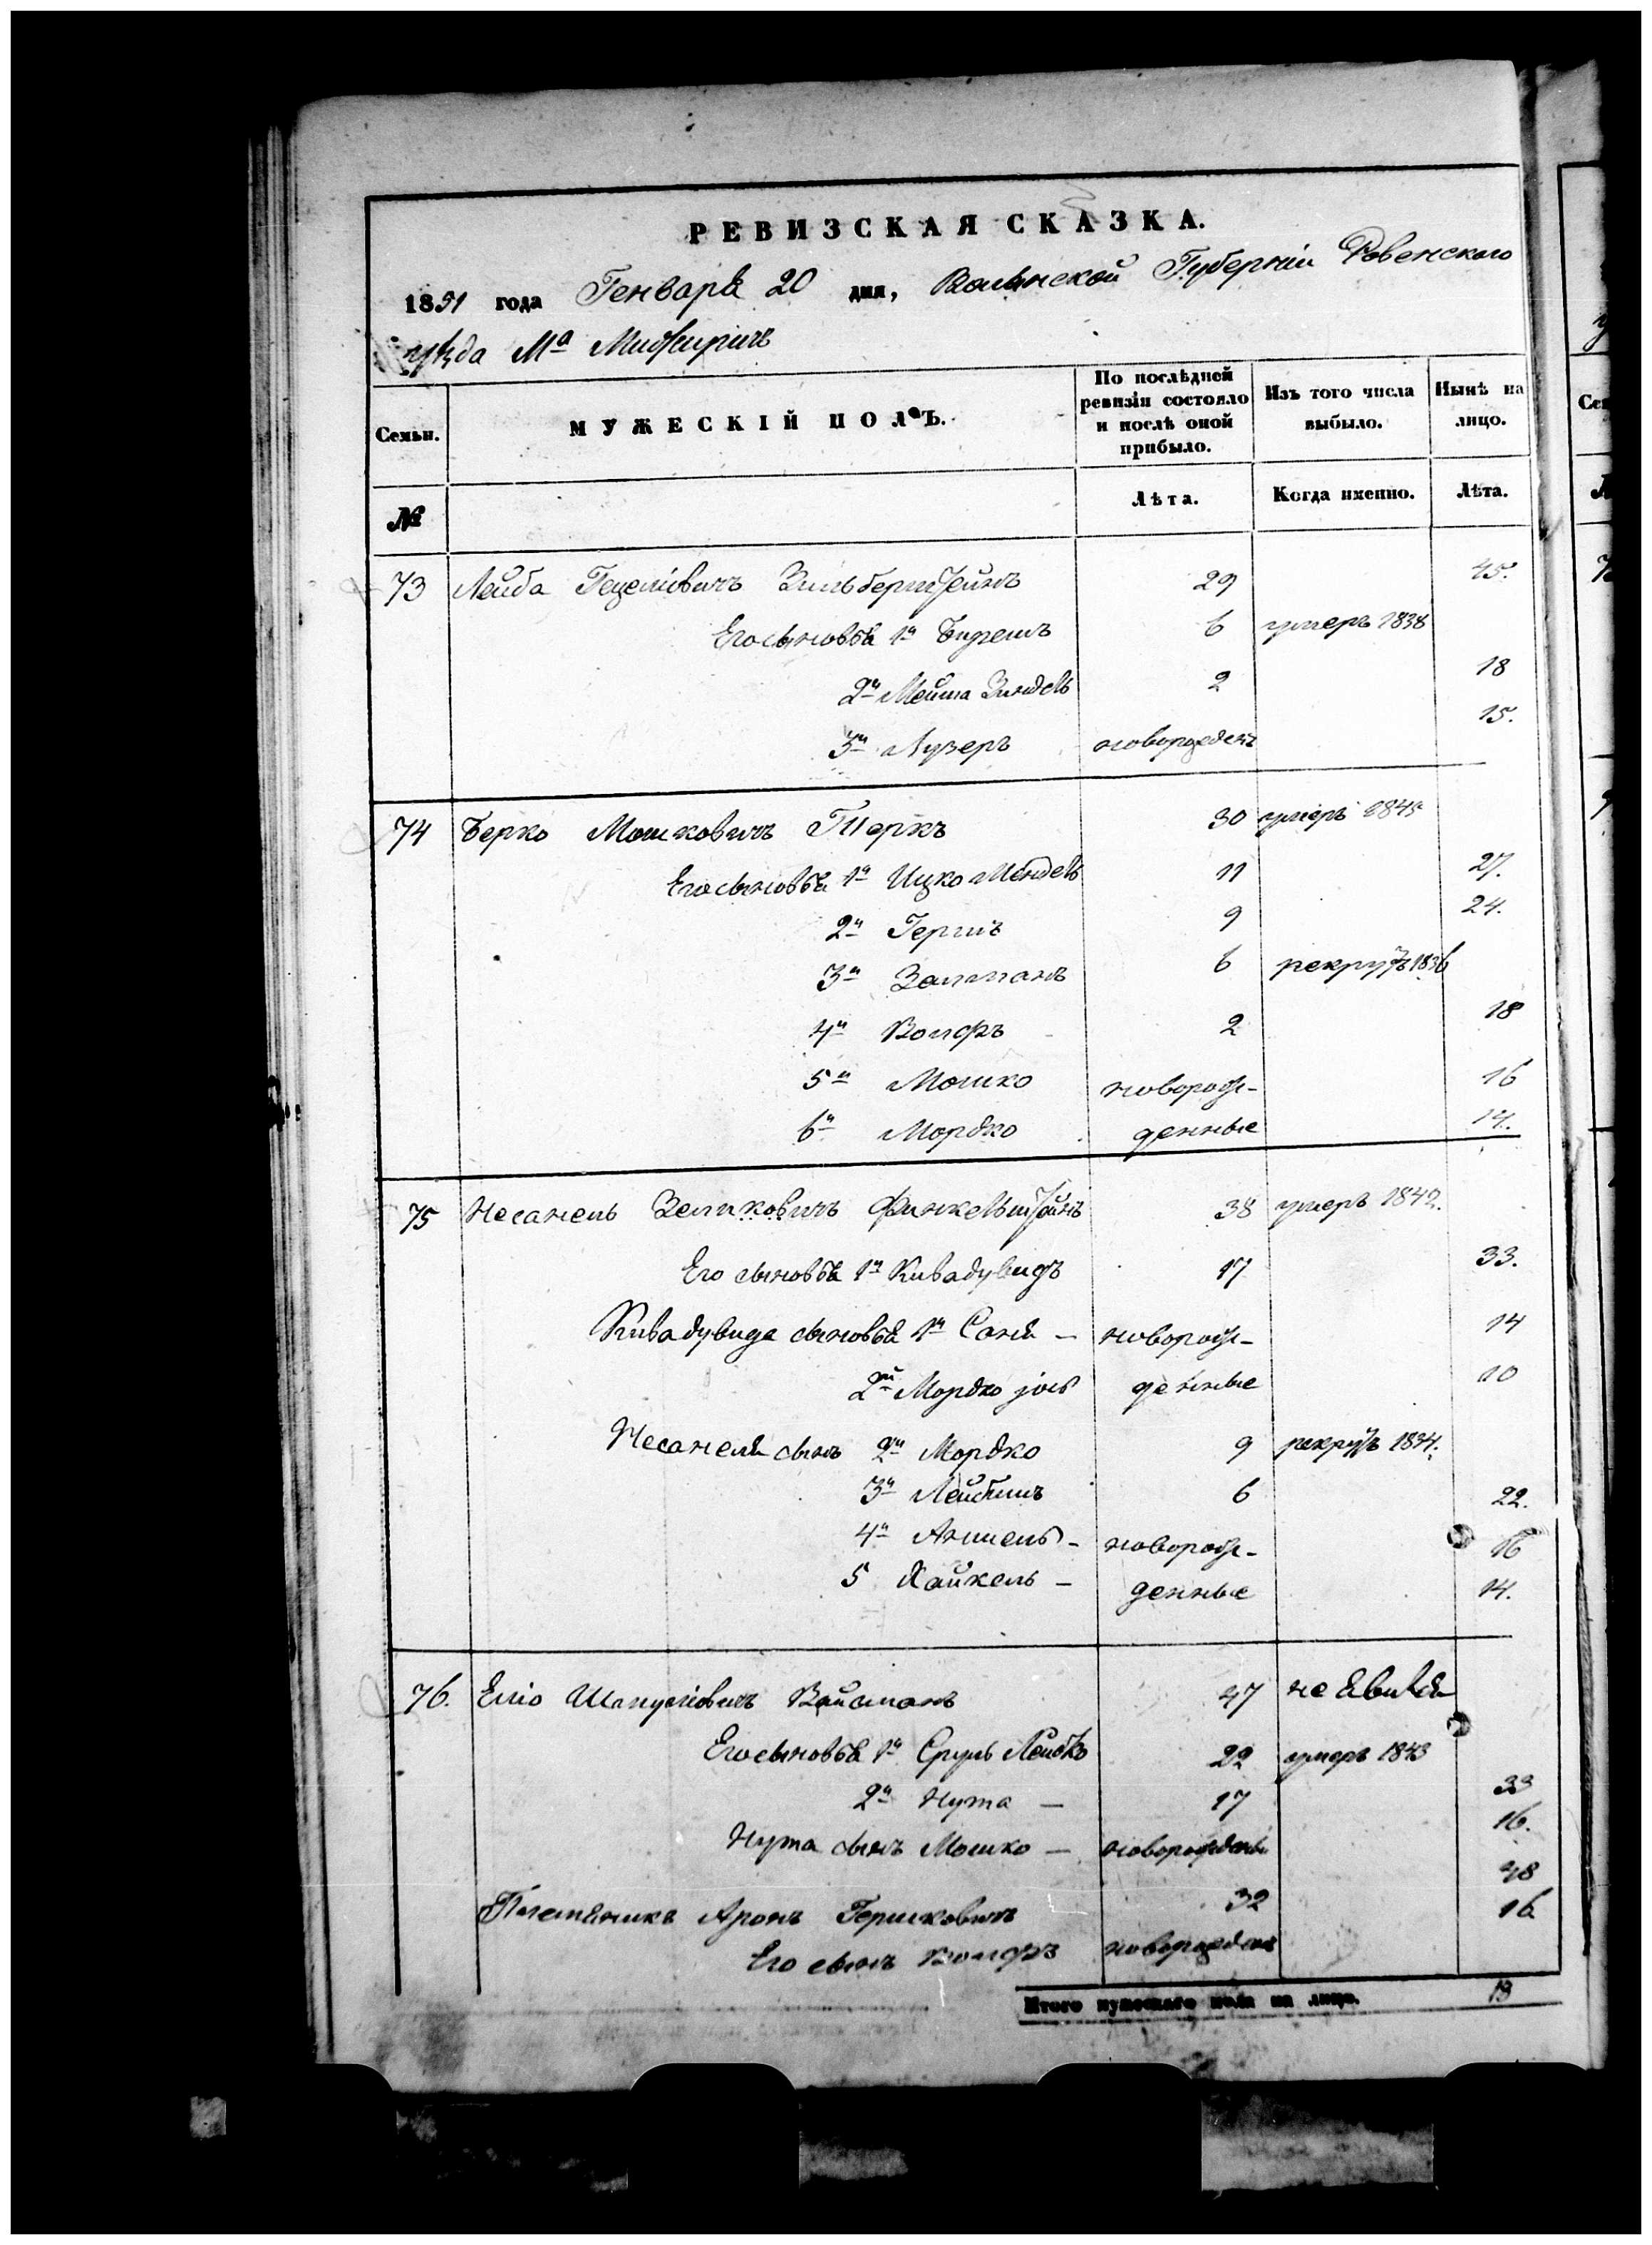 РЕВИЗСКАЯ СКАЗКА.
1851 года Генваря 20 дня, Волынской Губерніи Ровенского
уѣзда Мª Межиричъ
Семьи. МУЖЕСКІЙ ПОЛЪ. По послѣдней ревизіи состояло и послѣ оной прибыло. Изъ того числа выбыло. Нынѣ на лицо.
№ Лѣта. Когда именно. Лѣта.
73 Лейба Гецеліовичъ Зильберштейнъ 29 45.
Его сыновья 1й 6 умеръ 1838
2й Мейша Зиндель 2 18
3й Лузеръ новорожденъ 15.
74 Берко Мошковичъ Теркъ 30 умеръ 1845
Его сыновья 1й Ицко Мендель 11 27.
2й Гершъ 9 24.
3й Залманъ 6 рекрутъ 1836
4й Волфъ 2 18
5й Мошко новорож- 16
6й Мордко денные 14.
75 Несанель Зеликовичъ Финкельштейнъ 38 умеръ 1842.
Его сыновья 1й Кивадувидъ 17 33.
Кивадувида сыновья 1й Саня — новорож- 14
2й Мордко іось денные 10
Несанеля сынъ 2й Мордко 9 рекрутъ 1834.
3й Лейбишъ 6 22.
4й Аншель - новорож- 16
5 Хайкель - денные 14.
76. Еліо Шапуліовичъ Вайсманъ 47 не явился
Его сыновья 1й Сруль Лейбко 22 умеръ 1843
2й Нута — 17 33
Нута сынъ Мошко — новорожденъ 16.
Племяникъ Аронъ Гершковичъ 32 48
Его сынъ Волфъ новорожденъ 16
Итого мужескаго пола на лицо. 19